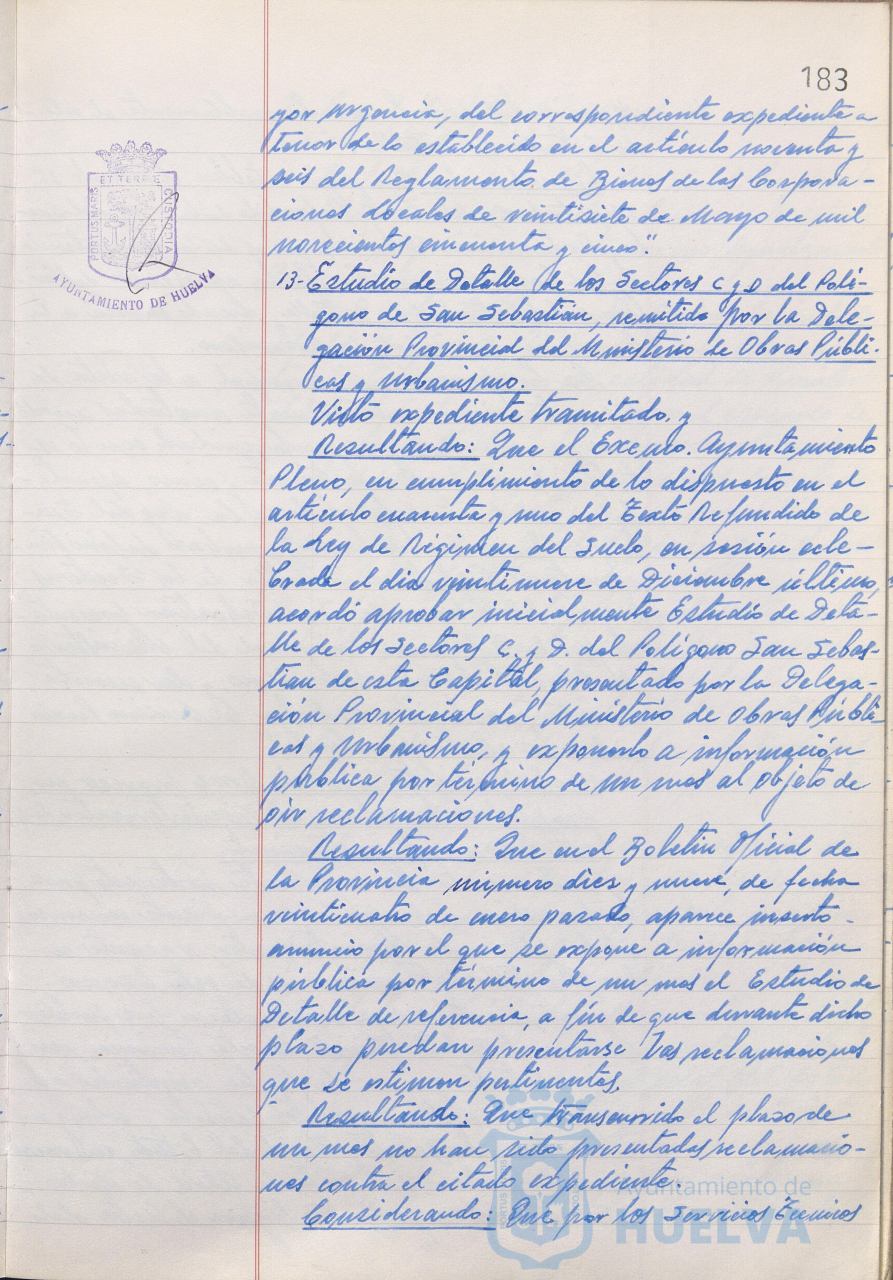 183
por urgencia, del correspondiente expediente a
tenor de lo establecido en el artículo noventa y
seis del Reglamento de Bienes de las Corpora-
ciones Locales de veintisiete de Mayo de mil
novecientos cincuenta y cinco".
13- Estudio de Detalle de los Sectores C y D del Polí-
gono de San Sebastián, remitido por la Dele-
gación Provincial del Ministerio de Obras Públi-
cas y Urbanismo.
Visto expediente tramitado, y
Resultando: Que el Excmo. Ayuntamiento
Pleno, en cumplimiento de lo dispuesto en el
artículo cuarenta y uno del Texto Refundido de
la Ley de Régimen del Suelo, en sesión cele-
brada el dia veintinueve de Diciembre último,
acordó aprobar inicialmente Estudio de Deta-
lle de los Sectores C. y D. del Polígono San Sebas-
tian de esta Capital, presentado por la Delega-
ción Provincial del Ministerio de Obras Públi-
cas y Urbanismo, y exponerlo a información
pública por término de un mes al objeto de
oir reclamaciones.
Resultando: Que en el Boletín Oficial de
la Provincia número diez y nueve, de fecha
veinticuatro de enero pasado, aparece inserto
anuncio por el que se expone a información
pública por término de un mes el Estudio de
Detalle de referencia, a fín de que durante dicho
plazo puedan presentarse las reclamaciones
que se estimen pertinentes.
Resultando: Que transcurrido el plazo de
un mes no han sido presentadas reclamacio-
nes contra el citado expediente.
Considerando: Que por los Servicios Técnicos
PORTUS MARIS ET TERRE CUSTODIA
AYUNTAMIENTO DE HUELVA
Ayuntamiento de
HUELVA